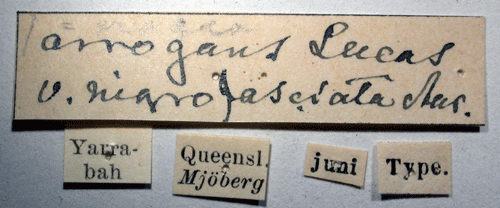 arrogans Lucas
v. nigrofasciata Aur.
Yarra-
bah
Queensl.
Mjöberg
juni
Type.